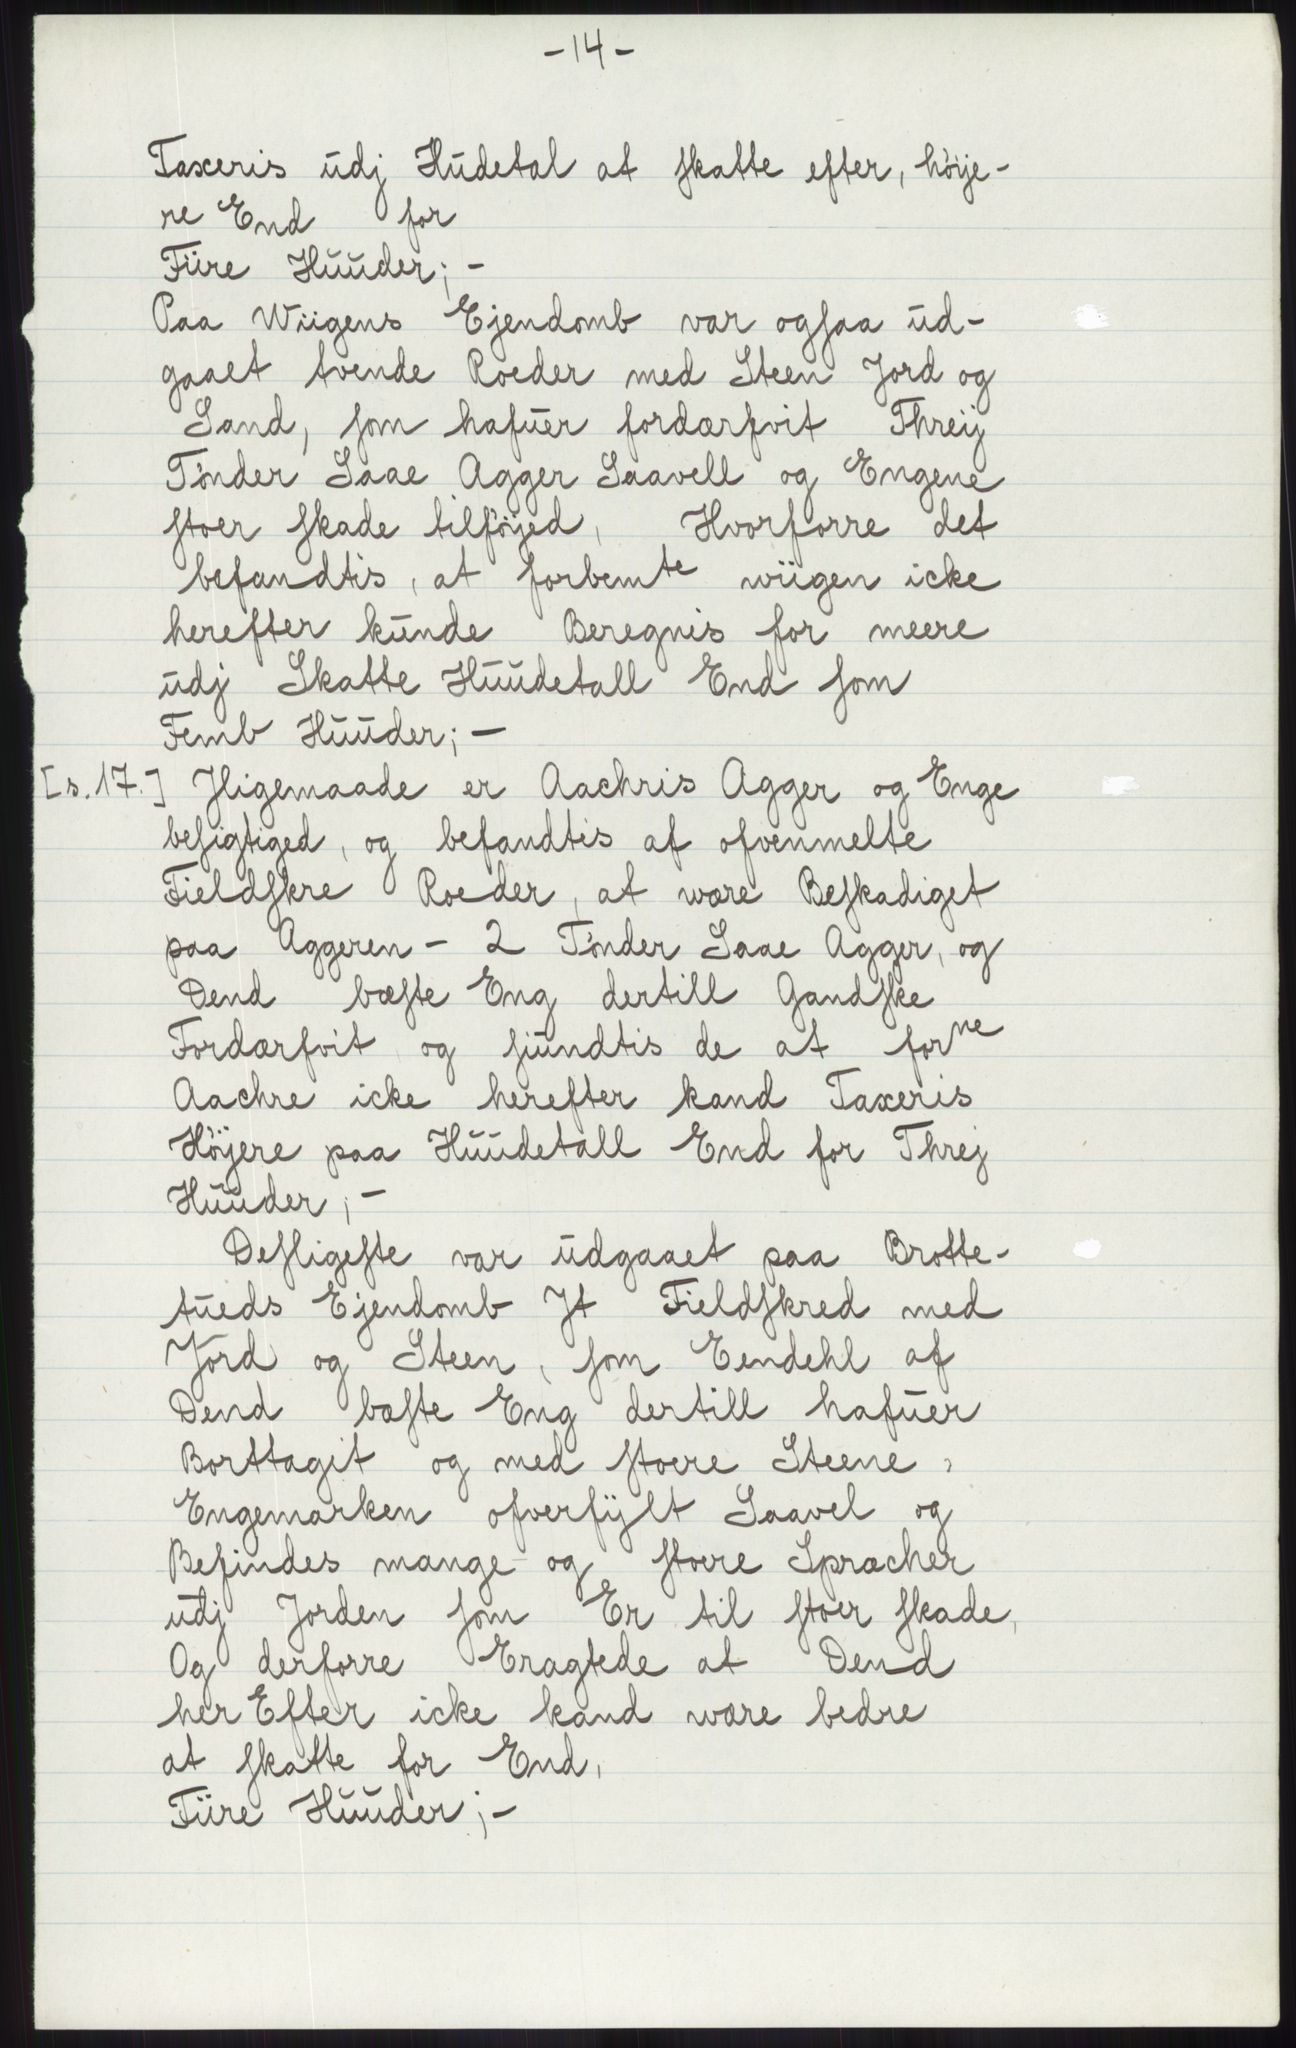 -14-
Taxeris udj Hudetal at skatte efter, höje-
re End for
Fiire Huuder; -
Paa Wiigens Ejendomb var ogsaa ud-
gaaet tvende Roeder med Steen Jord og
Sand, som hafuer fordærfvit Threij
Tönder Saae Agger Saavell og Engene
stoer skade tilföjed, Hvorforre det
befandtis, at forbemte wiigen icke
herefter kunde Beregnis for meere
udj Skatte Huudetall End som
Femb Huuder; -
[s. 17.] Jligemaade er Aachris Agger og Enge
besigtiged, og befandtis af ofvenmelte
Fieldskre Roeder, at wære Beskadiget
paa Aggeren - 2 Tönder Saae Agger, og
Dend bæste Eng dertill Gandske
Fordærfvit og siundtis de at forne
Aachre icke herefter kand Taxeris
Höjere paa Huudetall End for Threj
Huuder; -
Desligeste var udgaaet paa Brotte-
tueds Ejendomb Jt Fieldskred med
Jord og Steen, som Eendehl af
Dend bæste Eng dertill hafuer
Borttagit og med stoere Steene,
Engemarken ofverfÿlt Saavel og
Befindes mange og stoere Spræcher
udj Jorden som Er til stoer skade,
Og derforre Eragtede at Dend
her Efter icke kand wære bedre
at skatte for End,
Fiire Huuder; -